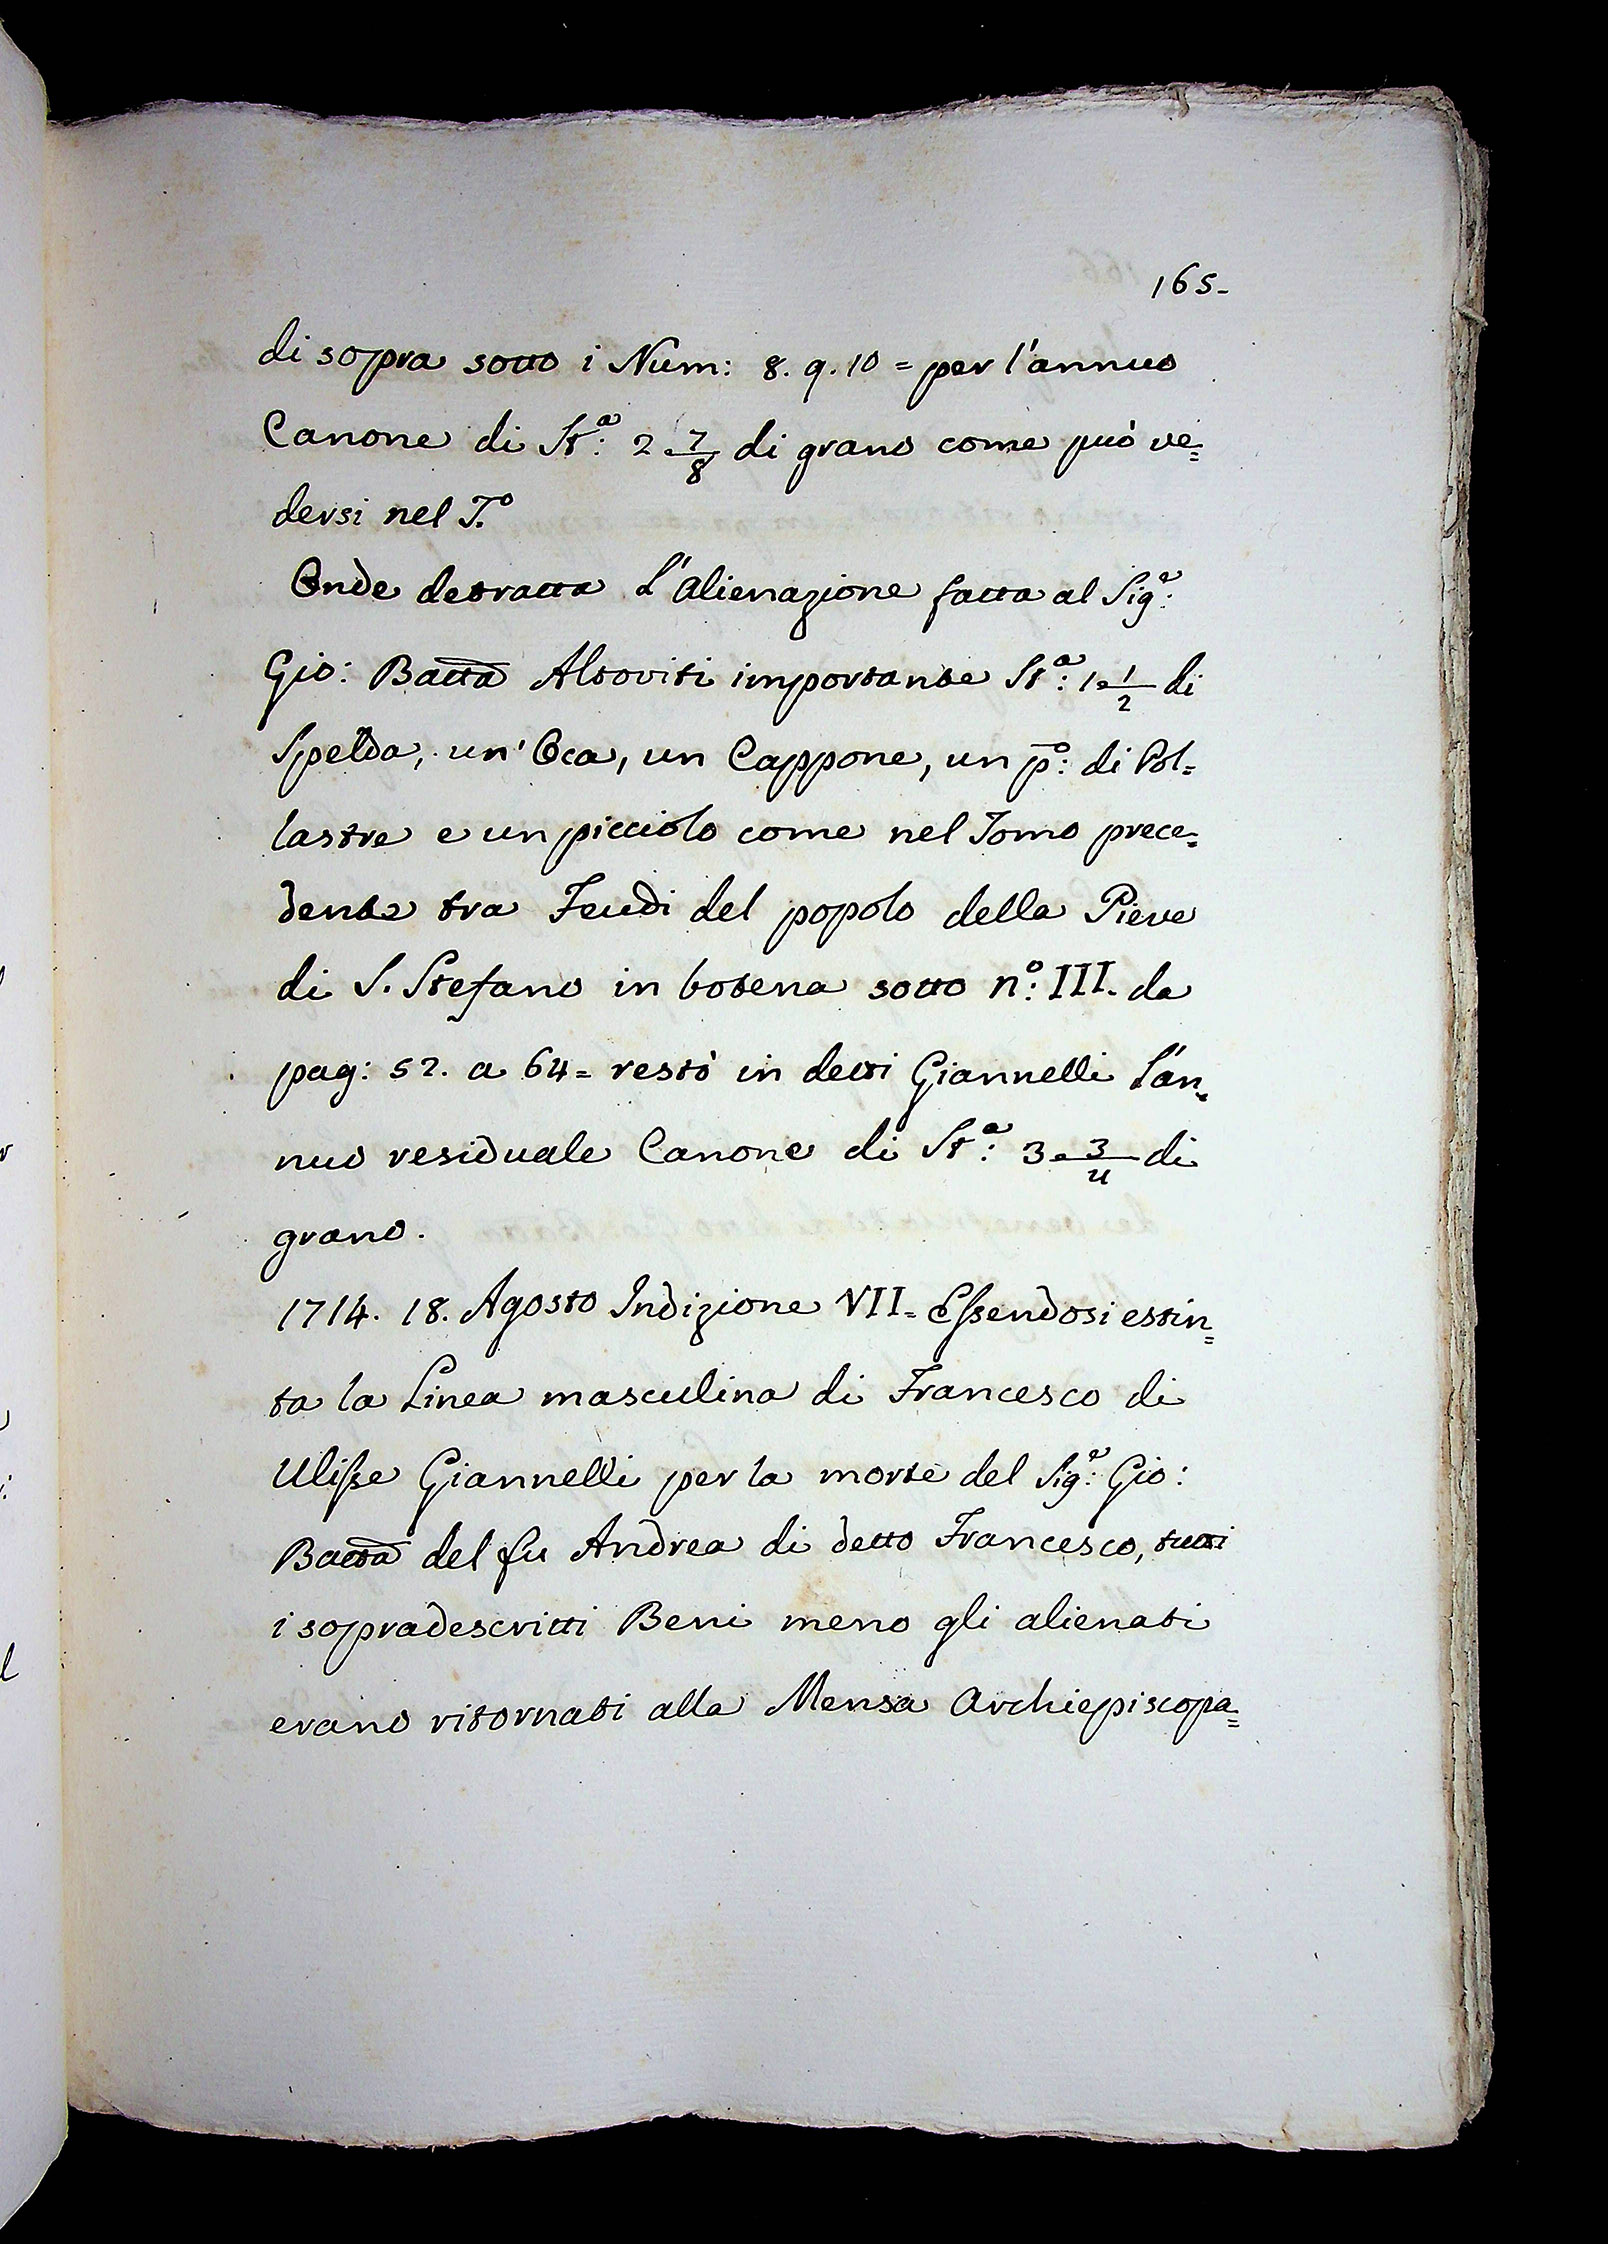 165-
di sopra sotto i Num: 8. 9. 10 = per l'annuo
Canone di St.ª: 2 7/8 di grano come può ve=
dersi nel T.º
Onde detratta l'alienazione fatta al Sig.ʳ:
Gio: Batta Altoviti importante St.ª: 1 1/2 di
Spelda, un'Oca, un Cappone, un p.º: di Pol=
lastre e un picciolo come nel Tomo prece=
dente tra Feudi del popolo della Pieve
di S. Stefano in botena sotto n.º: III. da
pag: 52. a 64 = restò in detti Giannelli l'an=
nuo residuale Canone di St.ª: 3 3/4 di
grano.
1714. 18. Agosto Indizione VII = Essendosi estin=
ta la Linea masculina di Francesco di
Ulisse Giannelli per la morte del Sig.ʳ: Gio:
Batta del fu Andrea di detto Francesco, tutti
i sopradescritti Beni meno gli alienati
erano ritornati alla Mensa Archiepiscopa=